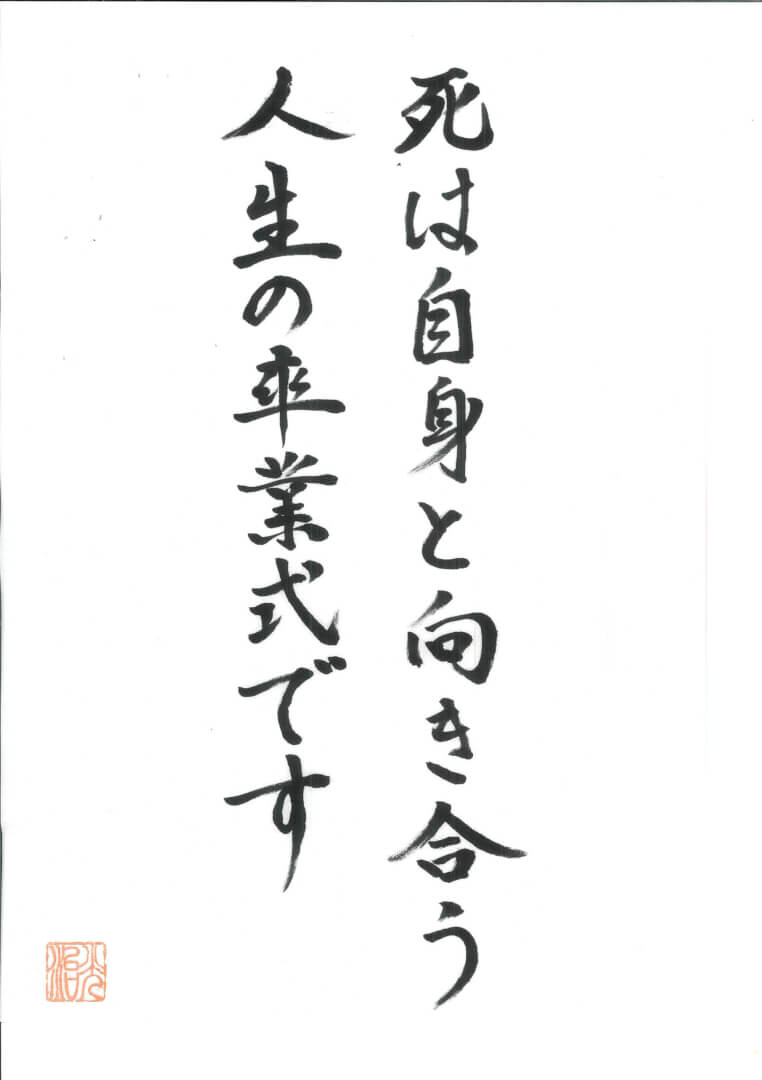 死は自身と向き合う
人生の卒業式です